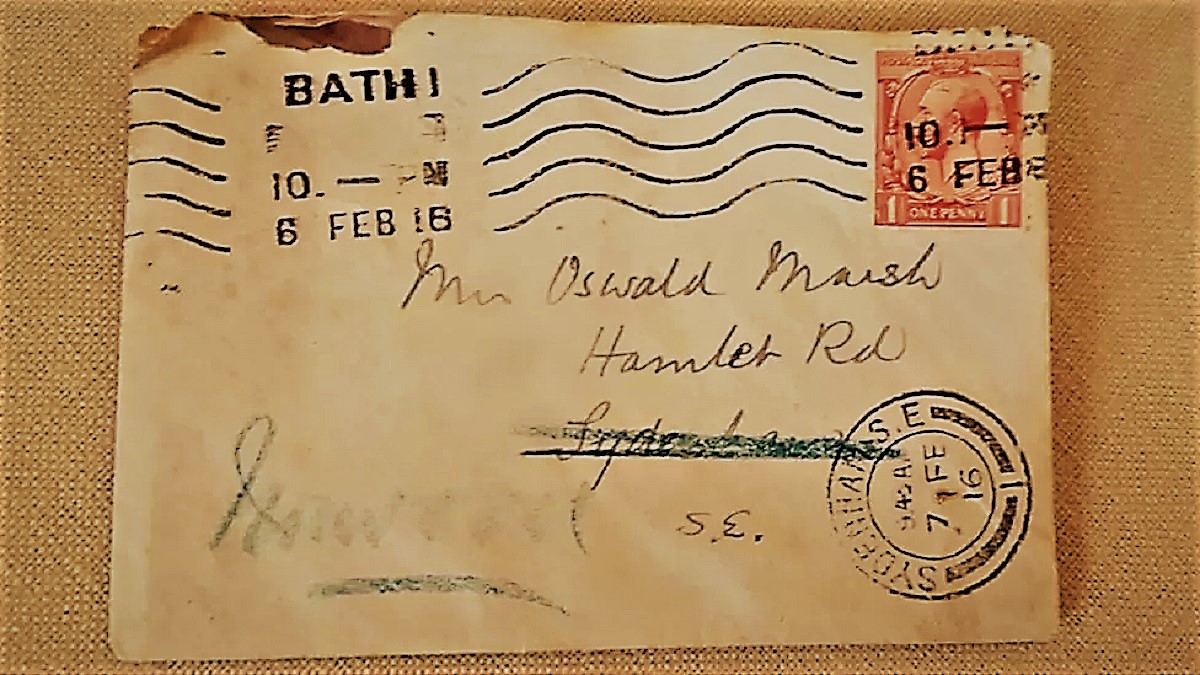 BATH 1
10. — PM
6 FEB 16
10. —
6 FEB
1 ONE PENNY 1
Oswald Marsh
Hamlet Rd
Sydenham
S.E.
SYDENHAM S.E
9 45 AM
7 FE
16